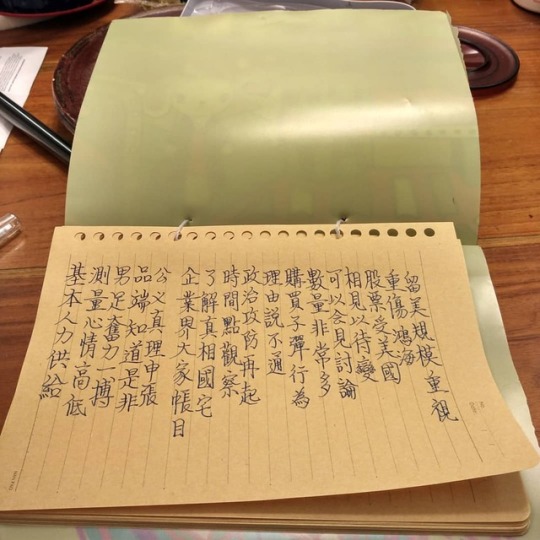 留美規模重視
重傷鴻海
股票受美國
相見以待變
可以会見討論
數量非常多
購買子彈行為
理由說不通
政治攻防再起
時間點觀察
了解真相國宅
企業界大家帳目
公义真理申張
品端知道是非
男足奮力一搏
測量心情高低
基本人力供給